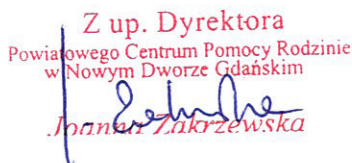 Z up. Dyrektora
Powiatowego Centrum Pomocy Rodzinie
w Nowym Dworze Gdańskim
Joanna Zakrzewska